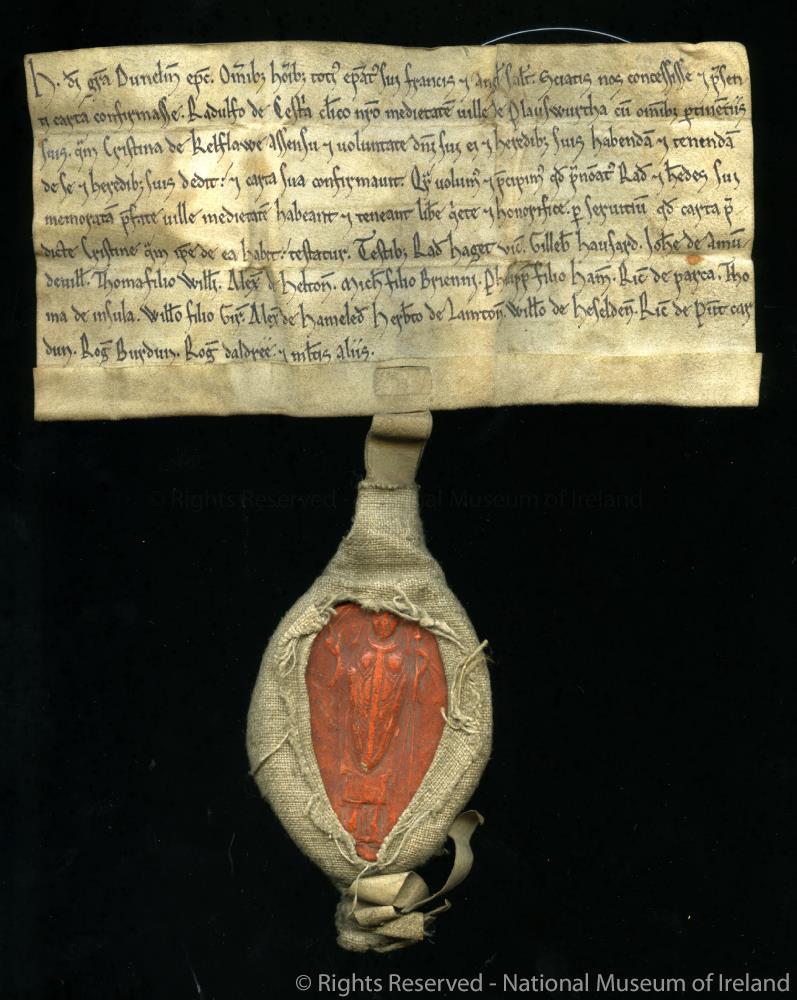 H. dī gr̄a Dunelm̄ ep̄c. Om̄ibꝫ hōībꝫ totiꝰ ep̄atꝰ sui francis ⁊ angl̄ sal̄t. Sciatis nos concessisse ⁊ p̄sen
ti carta confirmasse. Radulfo de Test̄a cl̄ico nr̄o medietatē uille de Plauswurtha cū om̄ibꝫ ꝑtinētiis
suis. qm̄ Cristina de Kelflawe assensu ⁊ uoluntate dn̄i sui ei ⁊ heredibꝫ suis habendā ⁊ tenendā
de se ⁊ heredibꝫ suis dedit: ⁊ carta sua confirmauit. Qr̄ volumꝰ ⁊ p̄cipimꝰ qd̄ p̄noātꝰ Rad̄ ⁊ h̄edes sui
memoratā p̄fate uille medietatē habeant ⁊ teneant lib̄e q̇ete ⁊ honorifice. ꝑ seruitiū qd̄ carta p̄
dicte Cristine qm̄ ip̄e de ea hab̄it: testatur. Testibꝫ Rad̄ haget vic̄. Gilleb̄ hansard. Joh̄e de Amū
deuill̄. Thoma filio Will̄i. Alex̄ d̄ helton̄. Mich̄ filio Brienni. Philipp̄ filio ham̄. Ric̄ de parca. Tho
ma de insula. Will̄o filio Alex̄ de hameled̄ herb̄to de Will̄o de heselden̄. Ric̄ de pūt car
dun. Roḡ Burdun. Roḡ daldreie: ⁊ ml̄tis aliis.
© Rights Reserved - National Museum of Ireland
© Rights Reserved - National Museum of Ireland